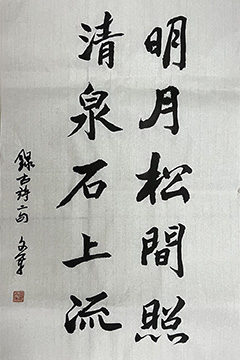 明月松間照
清泉石上流
錄古詩二句